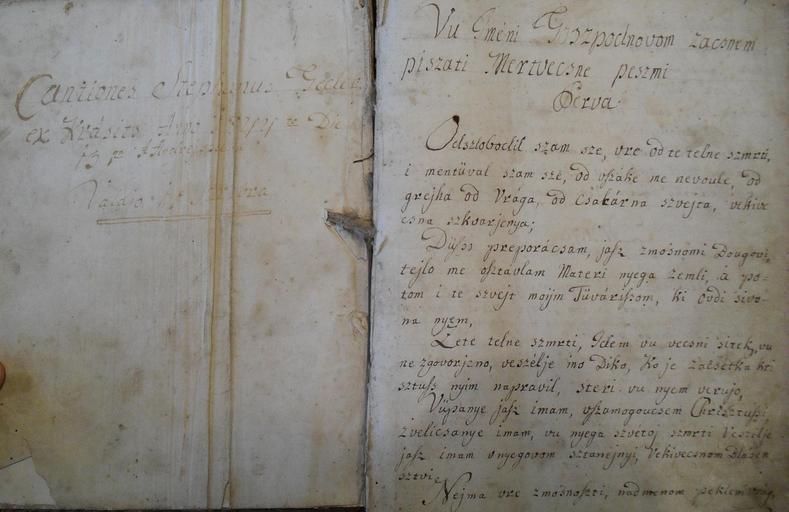 Cantiones Stephanus
ex Krásics Anno Die
13
Vu Iméni Goszpodnovom zacsnem
piszati Mertvecsne peszmi
Perva
Odszlobodil szam sze, vre od te telne szmrti,
i mentüval szam sze, od vszáke me nevoule, od
grejha od Vrága, od Csalárna szvejta, vekive
csna szkvarjenya;
Düsso preporácsam, jasz zmosnomi Dougovi,
tejlo me osztávlam Materi nyega zemli, á po=
tom i te szvejt moijm Tüvárissom, ki ovdi sivo-
na nyem,
Zete telne szmrti, Idem vu vecsni sitek, vu
ne zgovorjeno, veszélje ino Diko, ko je zacsétka kri
sztuss nyim napravil, steri vu nyem verujo,
Vüpanye jasz imam, vszamogoucsem Christussi,
zvelicsanye imam, vu nyega szvetoj szmrti Veszélje
jasz imam vnyegovom sztanejnyi, Vekivecsnom blasen
sztvie,
Nejma vre zmosnoszti, nadmenom peklenszki